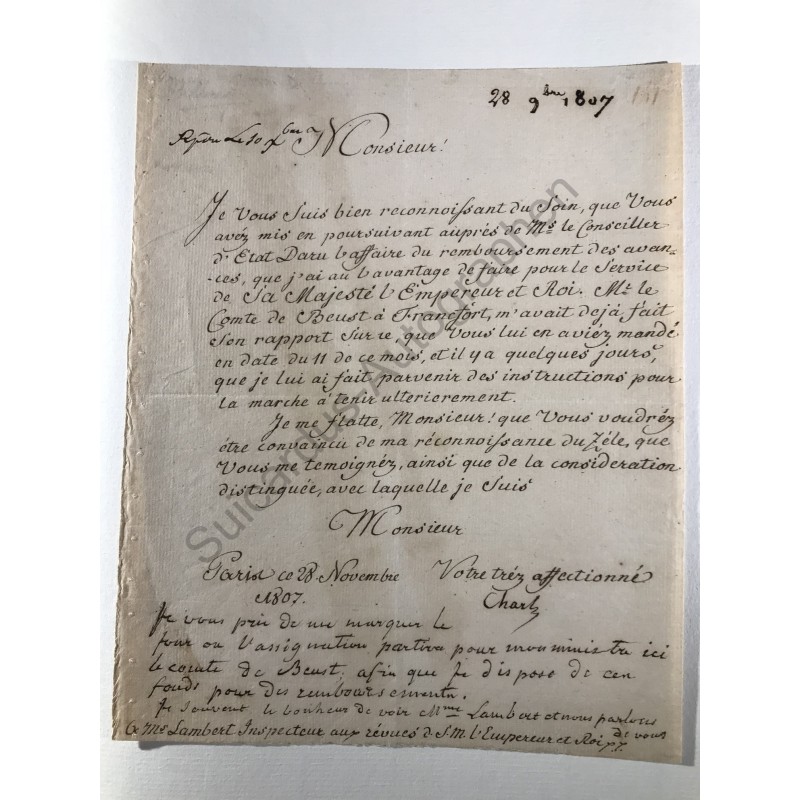 28 9bre 1807
Répon Le 10 Xbre Monsieur!
Je Vous Suis bien reconnoissant du Soin, que Vous
avéz mis en poursuivant auprés de Mr. le Conseiller
d'Etat Daru l'affaire du remboursement des avan-
-ces, que j'ai eu l'avantage de faire pour le Service
de Sa Majesté l'Empereur et Roi. Mr. le
Comte de Beust à Francfort, m'avait deja fait
Son rapport Sur ce, que Vous lui en aviéz mandé
en date du 11 de ce mois, et il y a quelques jours,
que je lui ai fait parvenir des instructions pour
la marche à tenir ulterieurement.
Je me flatte, Monsieur! que Vous voudréz
être convaincu de ma réconnoissance du Zéle, que
Vous me temoignéz, ainsi que de la consideration
distinguée, avec laquelle je Suis
Monsieur
Paris ce 28. Novembre Votre tréz affectionné
1807. Charl
Je vous prie de me marquer le
jour ou l'assignation partira pour mon ministre ici
le comte de Beust, afin que Je dispose de cen
fonds pour des remboursements.
Je souvent le bonheur de voir Mme Lambert et nous parlons
de vous
à Mr Lambert Inspecteur aux révues d. S. M. l'Empereur et Roi
Suicardus-Autographen